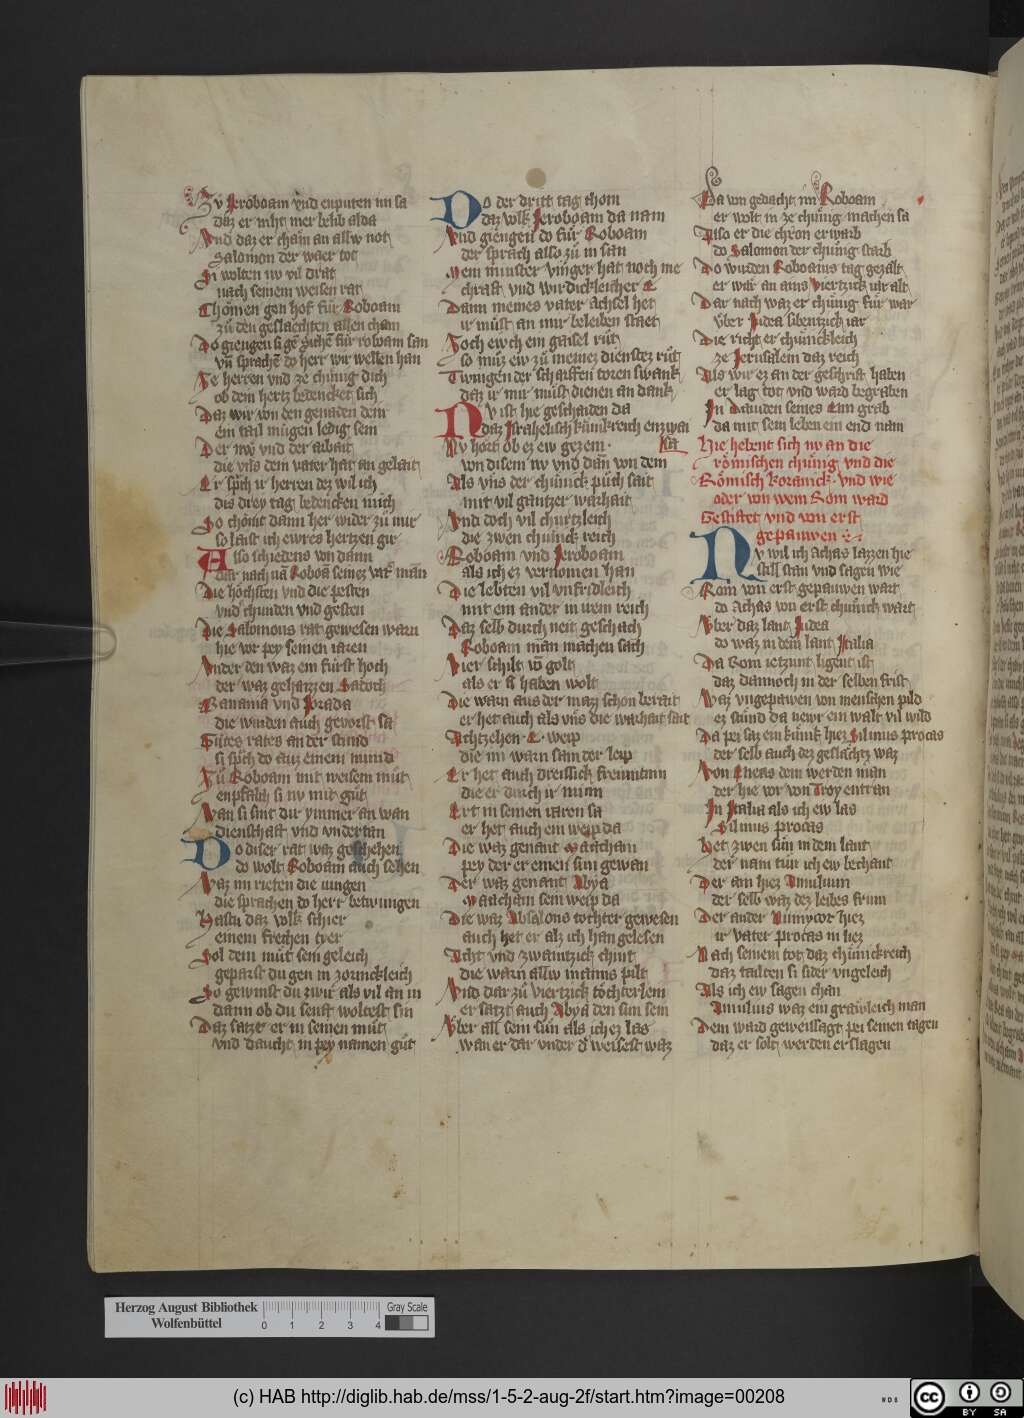 Zu Jeroboam vnd enputen im sa
daz er niht mer belib alda
Vnd daz er cham an allw not
Salomon der waer tot
Si wolten nv vil drat
nach seinem weisen rat
Chomen gen hof für Roboam
zu den geslaechten allen cham
Do giengen si
vn sprache do herr wir wellen han
herren vnd ze chünig dich
ob dein hertz bedencket sich
Daz wir von den genaden dein
ein tail mügen ledig sein
Der nw vnd der arbait
die vns dein vater hat an gelait
Er sp̄ch ir herren dez wil ich
dis drey tag bedencken mich
So chomt dann her wider zu mir
so laist ich ewres hertzen gir
Also schiedens von dann
dar nach nā Roboā seinez vat̄ man
Die höchsten vnd die pesten
vnd chunden vnd gesten
Die Salomons rat gewesen warn
hie vor pey seinen iaren
Vnder den waz ein fürst hoch
der waz gehaizzen Sadoch
Banania vnd Joiada
die wurden auch gevorst sa
Gutes rates an der stund
si sp̄ch do auz einem mund
Zu Roboam mit weisem mut
enpfalch si nv mit gut
Wan si sint dir ymmer an wan
dienschaft vnd vndertan
Do diser rat waz geschehen
do wolt Roboam auch sehen
Waz im rieten die iungen
die sprachen do herr betwungen
Hastu daz volk schier
einem frechen tyer
Sol dein mut sein geleich
geparst du gen in zornickleich
So gewinst du zwir als vil an in
dann ob du senft woltest sin
Daz satzt er in seinen mut
vnd daucht in pey namen gut
Do der dritt tag chom
daz volk Jeroboam da nam
Vnd giengen do für Roboam
der sprach also zu in san
Mein minster vinger hat noch me
chraft vnd wirdickleicher E
Dann meines vater achsel het
ir müst an mir beleiben staet
Joch ewch ein gaisel rut
so muz ew zu meinez dienstez rut
Twingen der scharffen toren swank
daz ir mir müst dienen an dank
Nv ist hie geschaiden da
daz Israhelisch künikreich enzwai
sa
Nv hort ob ez ew gezem
von disem nv vnd dan von dem
Als vns der chunick puch sait
mit vil gantzer warhait
Vnd doch vil churtzleich
die zwen chunick reich
Roboam vnd Jeroboam
als ich ez vernomen han
Die lebten vil vnfridleich
mit ein ander in irem reich
Daz selb durch neit geschach
Roboam man machen sach
Vier schilt võ golt
als er si haben wolt
Die warn aus der mazz schon berait
er het auch als vns die warhait sait
Achtzehen E weip
die im warn sam der leip
Er het auch dreissick freuntinn
die er durch ir minn
Erst in seinen iaren sa
er het auch ein weip da
Die waz genant Maacham
pey der er einen sun gewan
Der waz genant Abya
Maacham sein weip da
Die waz Absolons tochter gewesen
auch het er alz ich han gelesen
Acht vnd zwaintzick chint
die warn allw mannes pilt
Vnd dar zu viertzick töchterlein
er satzt auch Abya den sun sein
Vber all sein sun als ich ez las
wan er dar vnder d̄ weisest waz
Da von gedacht im Roboam
er wolt in ze chünig machen sa
Also er die chron erwarb
do Salomon der chünig starb
Do wurden Roboams tag gezalt
er war an ains viertzick iar alt
Dar nach waz er chünig für war
vber Judea sibentzick iar
Die richt er chunickleich
ze Jerusalem daz reich
Als wir ez an der geschrift haben
er lag tot vnd ward begraben
In Dauiden seines Enn grab
da mit sein leben ein end nam
Hie hebent sich nv an die
römischen chünig vnd die
Römisch koranick vnd wie
oder von wem Rom ward
Gestiftet vnd von erst
gepauwen
Nv wil ich Achas lazzen hie
still stan vnd sagen wie
Rom von erst gepauwen wart
do Achas von erst chunick wart
Vber daz lant Judea
do waz in dem lant Italia
Da Rom ietzunt ligent ist
daz dannoch in der selben frist
Waz vngepawen von menschen pild
ez stund da newr ein walt vil wild
Da pei saz ein künik hiez Siluius procas
der selb auch dez geslächtz waz
Von Eneas dem werden man
der hie vor von Troy entran
In Italia als ich ew las
Siluius procas
Het zwen sun in dem lant
der nam tun ich ew bechant
Der ain hiez Amulium
der selb waz dez leibes frum
Der ander Numytor hiez
ir vater procas in liez
Nach seinem tot daz chunickreich
daz tailten si sider vngeleich
Als ich ew sagen chan
Amulius waz ein grawleich man
Dem ward geweissagt pei seinen tagen
daz er solt werden erslagen
Herzog August Bibliothek
Wolfenbüttel
0 1 2 3 4
Gray Scale
(c) HAB http://diglib.hab.de/mss/1-5-2-aug-2f/start.htm?image=00208
WDB
cc BY SA